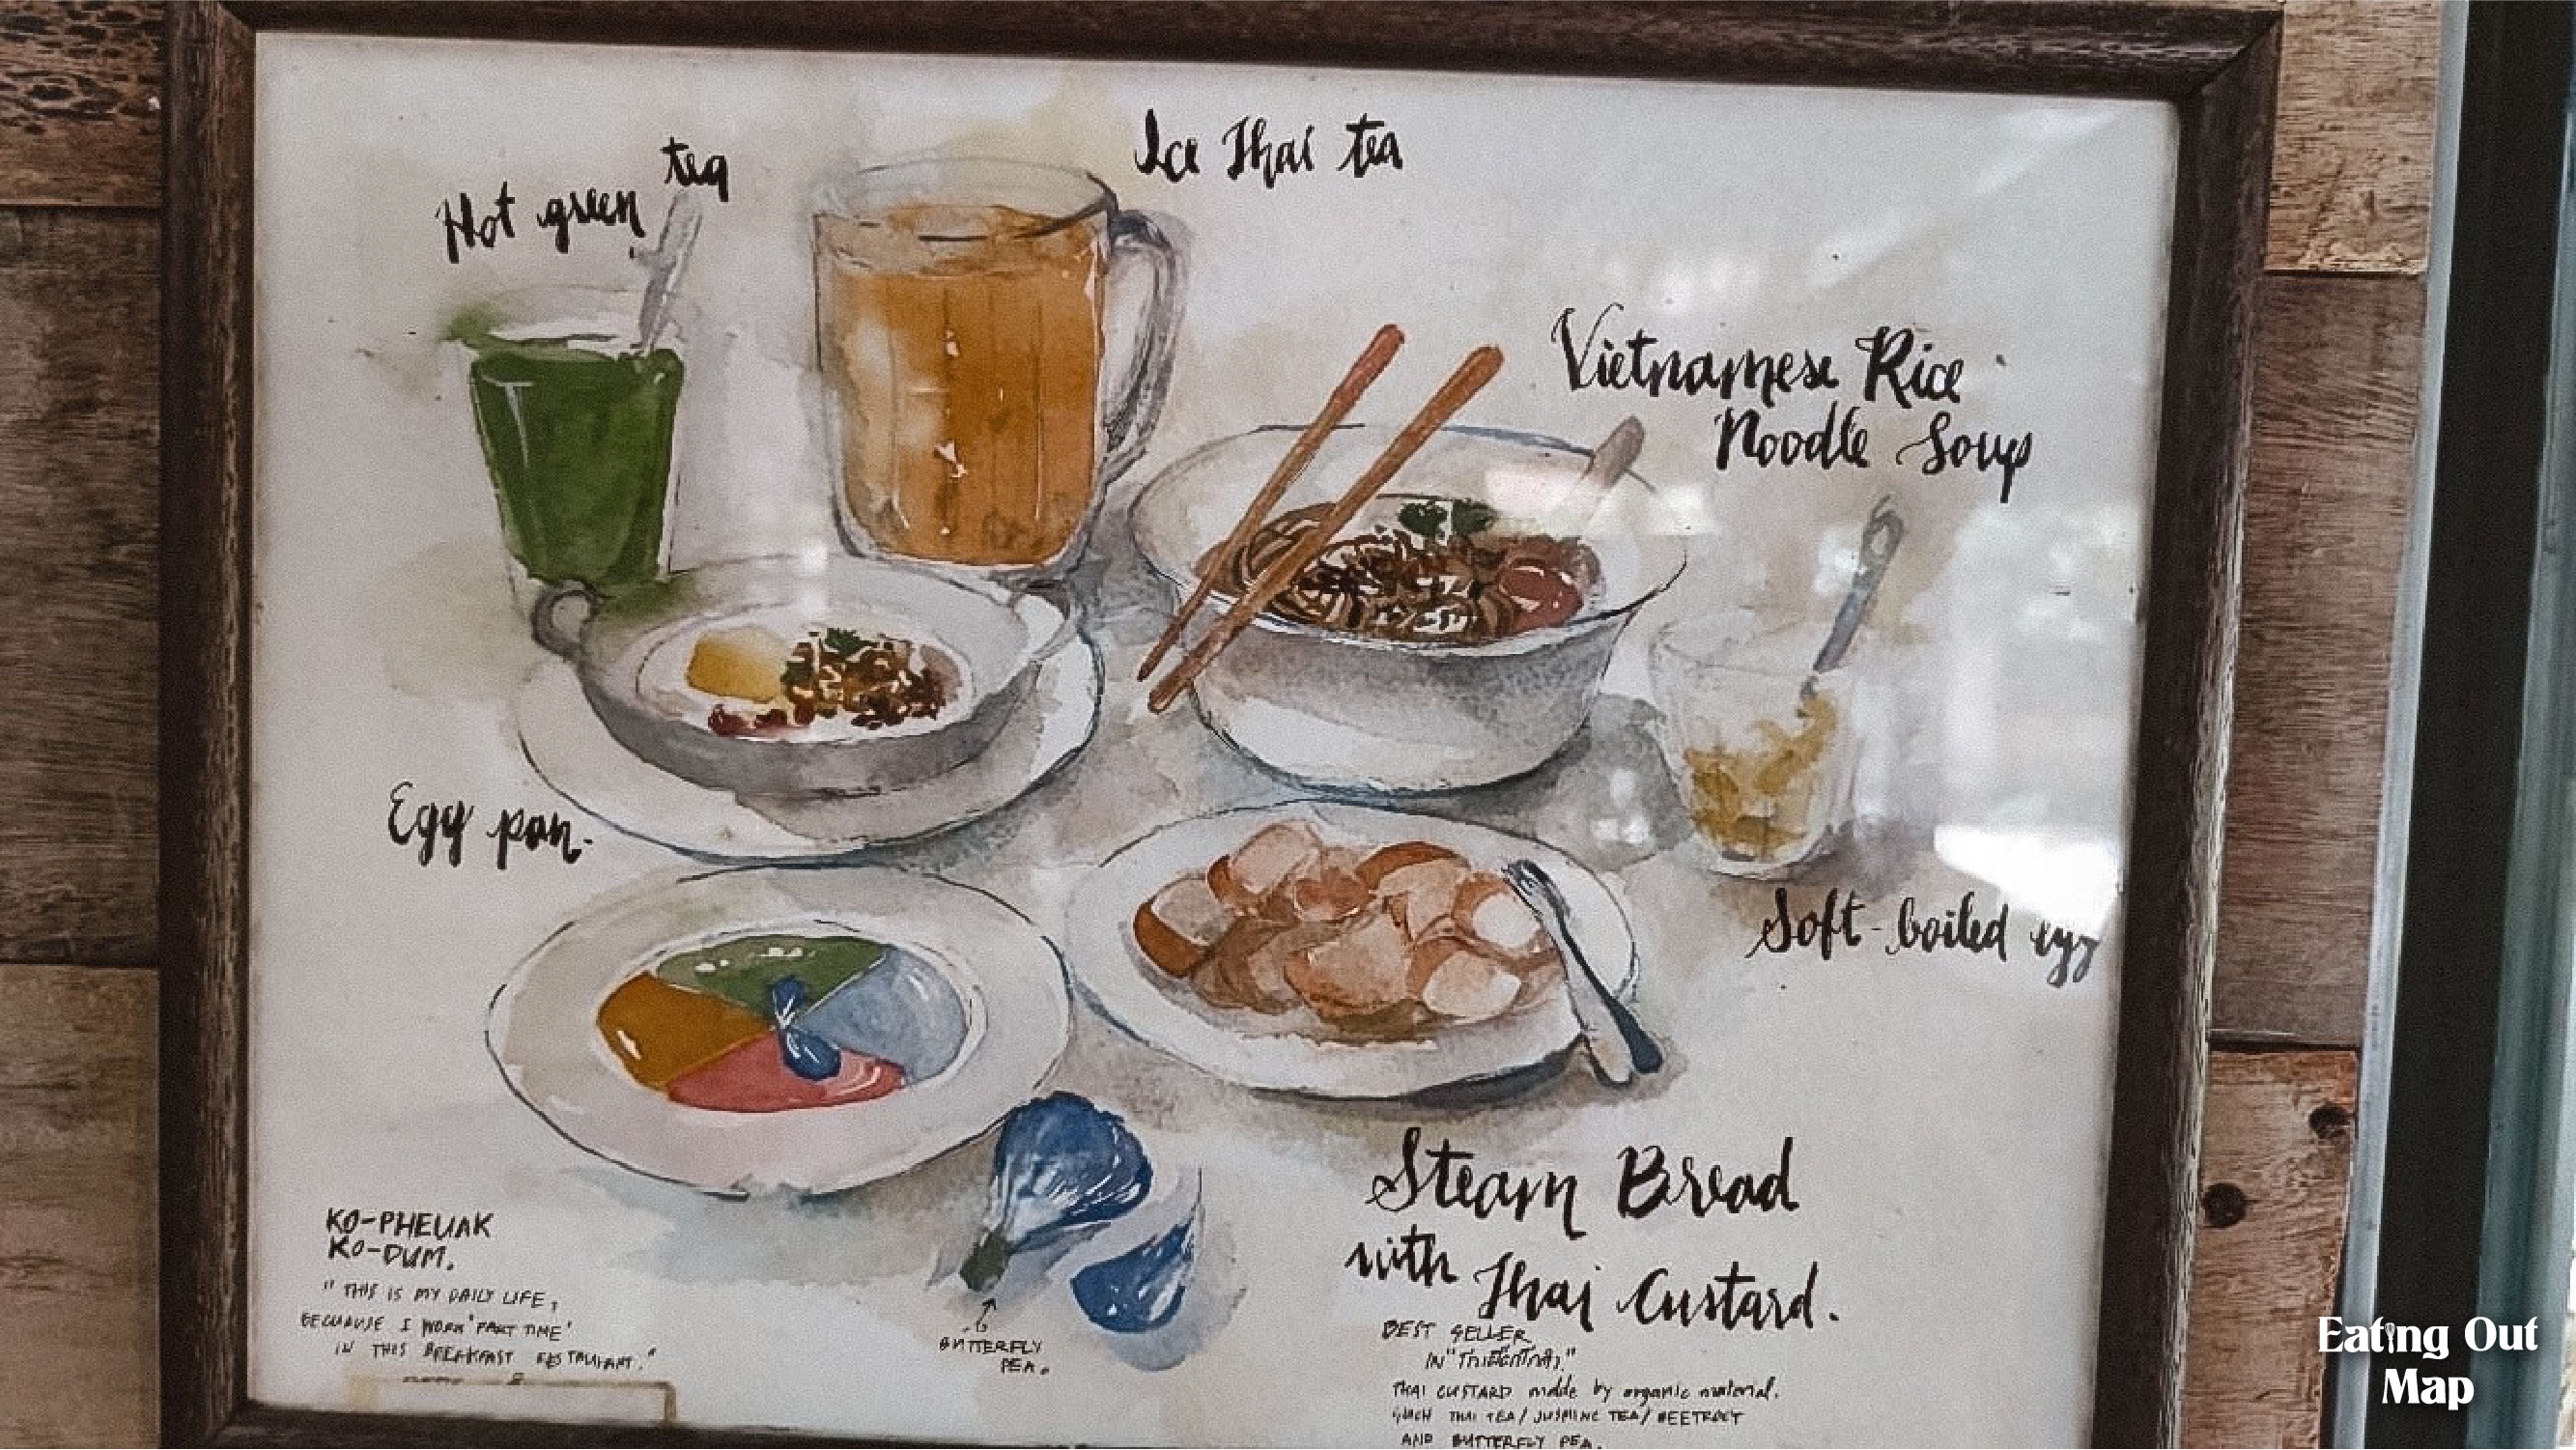 Ice Thai tea
Hot green tea
Vietnamese Rice
Noodle Soup
Egg pan.
Soft-boiled egg
Steam Bread
with Thai Custard.
KO-PHEUAK
KO-DUM.
"THIS IS MY DAILY LIFE,
BECUAUSE I WORK 'PART TIME'
IN THIS BREAKFAST RESTAURANT."
BUTTERFLY
PEA.
BEST SELLER
IN
THAI CUSTARD made by organic material.
SUCH THAI TEA/ JUSMINE TEA/ BEETROOT
AND BUTTERFLY PEA.
Eating Out
Map